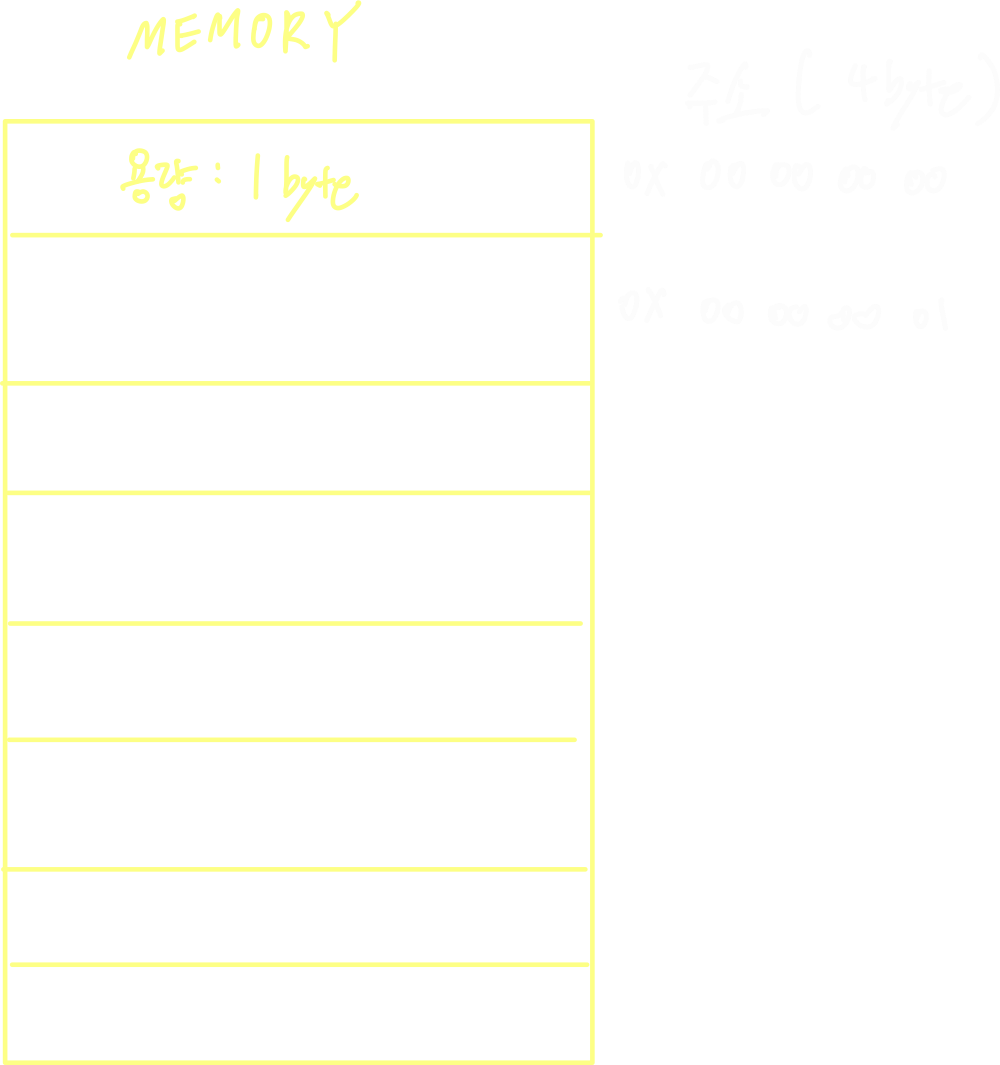 MEMORY
주소 ( 4 byte )
용량 : 1 byte
0x 00 00 00 00
0x 00 00 00 01